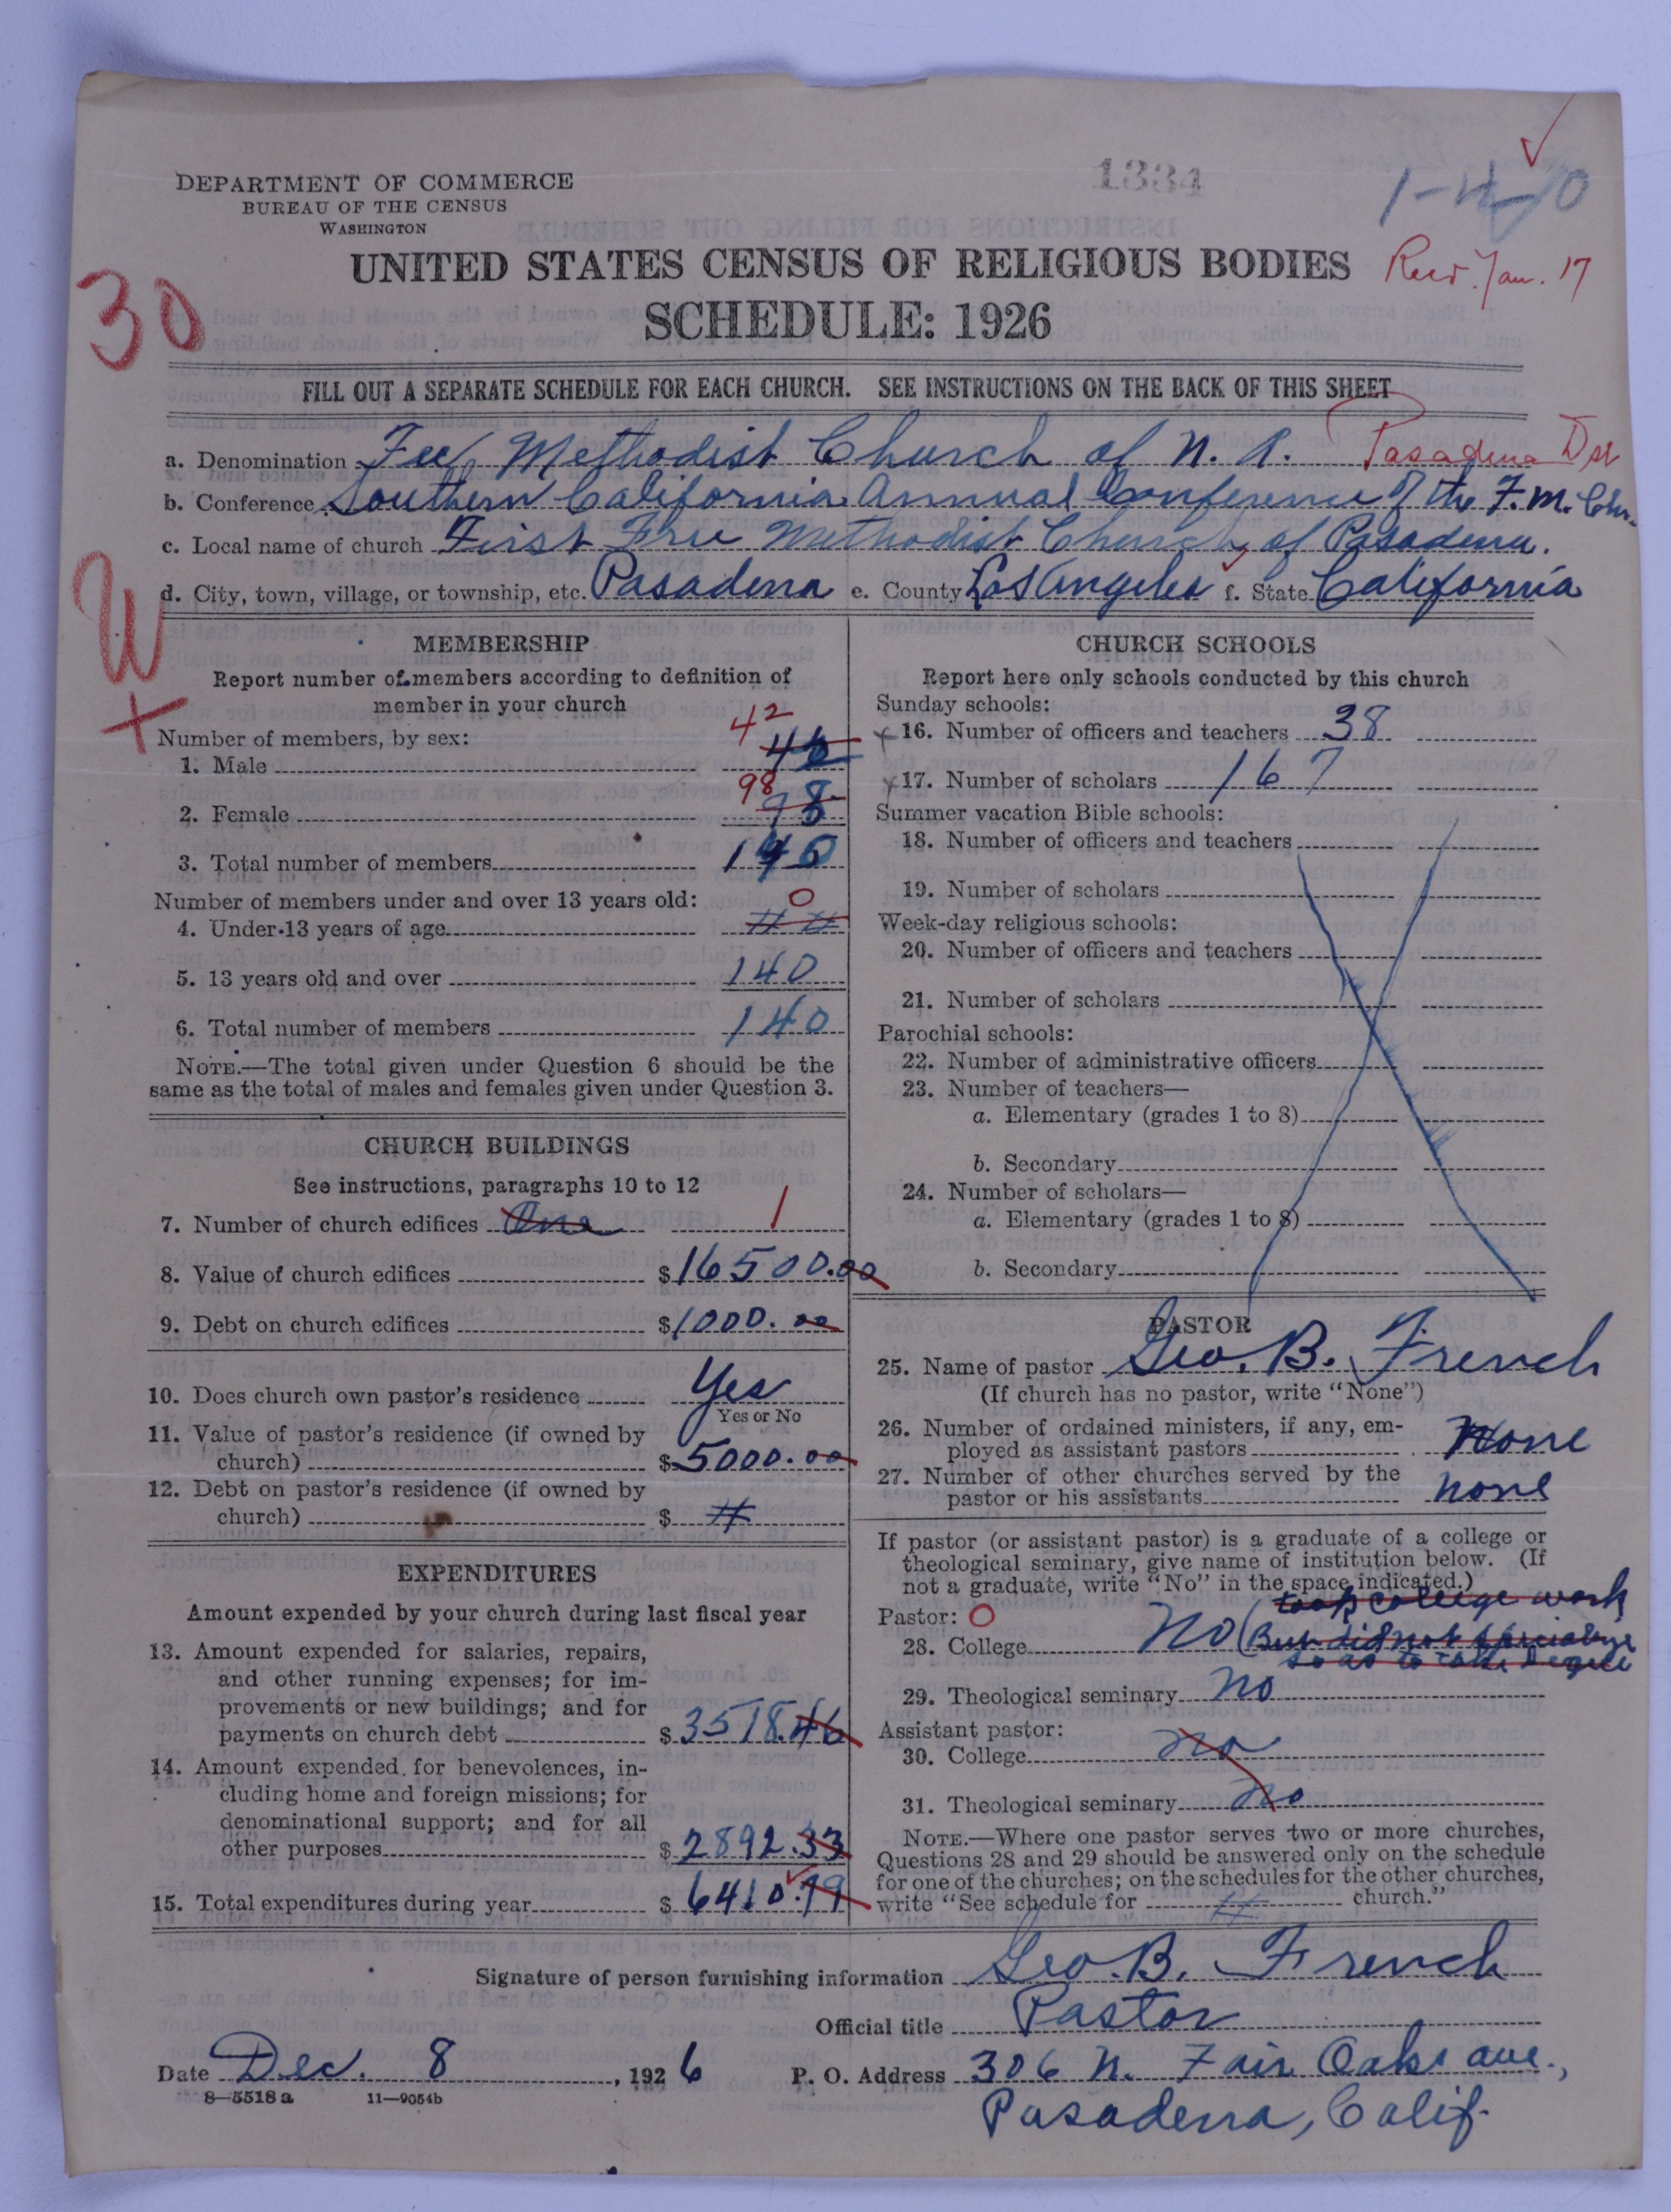 1334
DEPARTMENT OF COMMERCE
BUREAU OF THE CENSUS
WASHINGTON
UNITED STATES CENSUS OF RELIGIOUS BODIES
Jan. 17
SCHEDULE: 1926
30
FILL OUT A SEPARATE SCHEDULE FOR EACH CHURCH. SEE INSTRUCTIONS ON THE BACK OF THIS SHEET
a. Denomination Free Methodist Church of N. A. Pasadena Dst
b. Conference Southern California Annual Conference of the F. M. Chr.
c. Local name of church First Free Methodist Church, of Pasadena.
d. City, town, village, or township, etc. Pasadena e. County Los Angeles f. State California
W
+
MEMBERSHIP
Report number of members according to definition of
member in your church
Number of members, by sex:
42
1. Male
98
2. Female 98
3. Total number of members 140
Number of members under and over 13 years old:
0
4. Under 13 years of age # #
5. 13 years old and over 140
6. Total number of members 140
NOTE.—The total given under Question 6 should be the
same as the total of males and females given under Question 3.
CHURCH BUILDINGS
See instructions, paragraphs 10 to 12
7. Number of church edifices One 1
8. Value of church edifices $16500.00
9. Debt on church edifices $1000.00
10. Does church own pastor's residence Yes
Yes or No
11. Value of pastor's residence (if owned by
church) $5000.00
12. Debt on pastor's residence (if owned by
church) $ #
EXPENDITURES
Amount expended by your church during last fiscal year
13. Amount expended for salaries, repairs,
and other running expenses; for im-
provements or new buildings; and for
payments on church debt $3518.46
14. Amount expended for benevolences, in-
cluding home and foreign missions; for
denominational support; and for all
other purposes $2892.33
15. Total expenditures during year $6410.79
CHURCH SCHOOLS
Report here only schools conducted by this church
Sunday schools:
16. Number of officers and teachers 38
17. Number of scholars 167
Summer vacation Bible schools:
18. Number of officers and teachers
19. Number of scholars
Week-day religious schools:
20. Number of officers and teachers
21. Number of scholars
Parochial schools:
22. Number of administrative officers
23. Number of teachers—
a. Elementary (grades 1 to 8)
b. Secondary
24. Number of scholars—
a. Elementary (grades 1 to 8)
b. Secondary
PASTOR
25. Name of pastor Geo. B. French
(If church has no pastor, write "None")
26. Number of ordained ministers, if any, em-
ployed as assistant pastors None
27. Number of other churches served by the
pastor or his assistants none
If pastor (or assistant pastor) is a graduate of a college or
theological seminary, give name of institution below. (If
not a graduate, write "No" in the space indicated.)
took college work
Pastor: O
28. College No (But did not specialize
so as to take Degree
29. Theological seminary No
Assistant pastor:
30. College no
31. Theological seminary no
NOTE.—Where one pastor serves two or more churches,
Questions 28 and 29 should be answered only on the schedule
for one of the churches; on the schedules for the other churches,
write "See schedule for # church."
Signature of person furnishing information Geo. B. French
Official title Pastor
Date Dec. 8, 1926 P. O. Address 306 N. Fair Oaks ave.,
8—5518a 11—9054b
Pasadena, Calif.